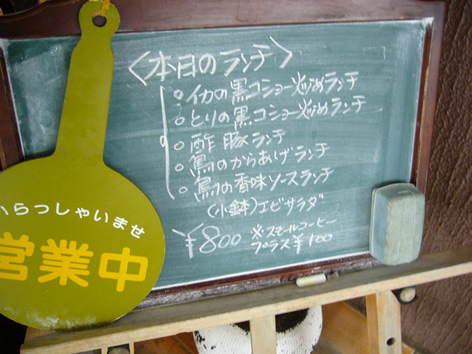 〈本日のランチ〉
○イカの黒コショー炒めランチ
○とりの黒コショー炒めランチ
○酢豚ランチ
○鳥のからあげランチ
○鳥の香味ソースランチ
(小鉢)エビサラダ
¥800
※スモールコーヒー
プラス¥100
いらっしゃいませ
営業中